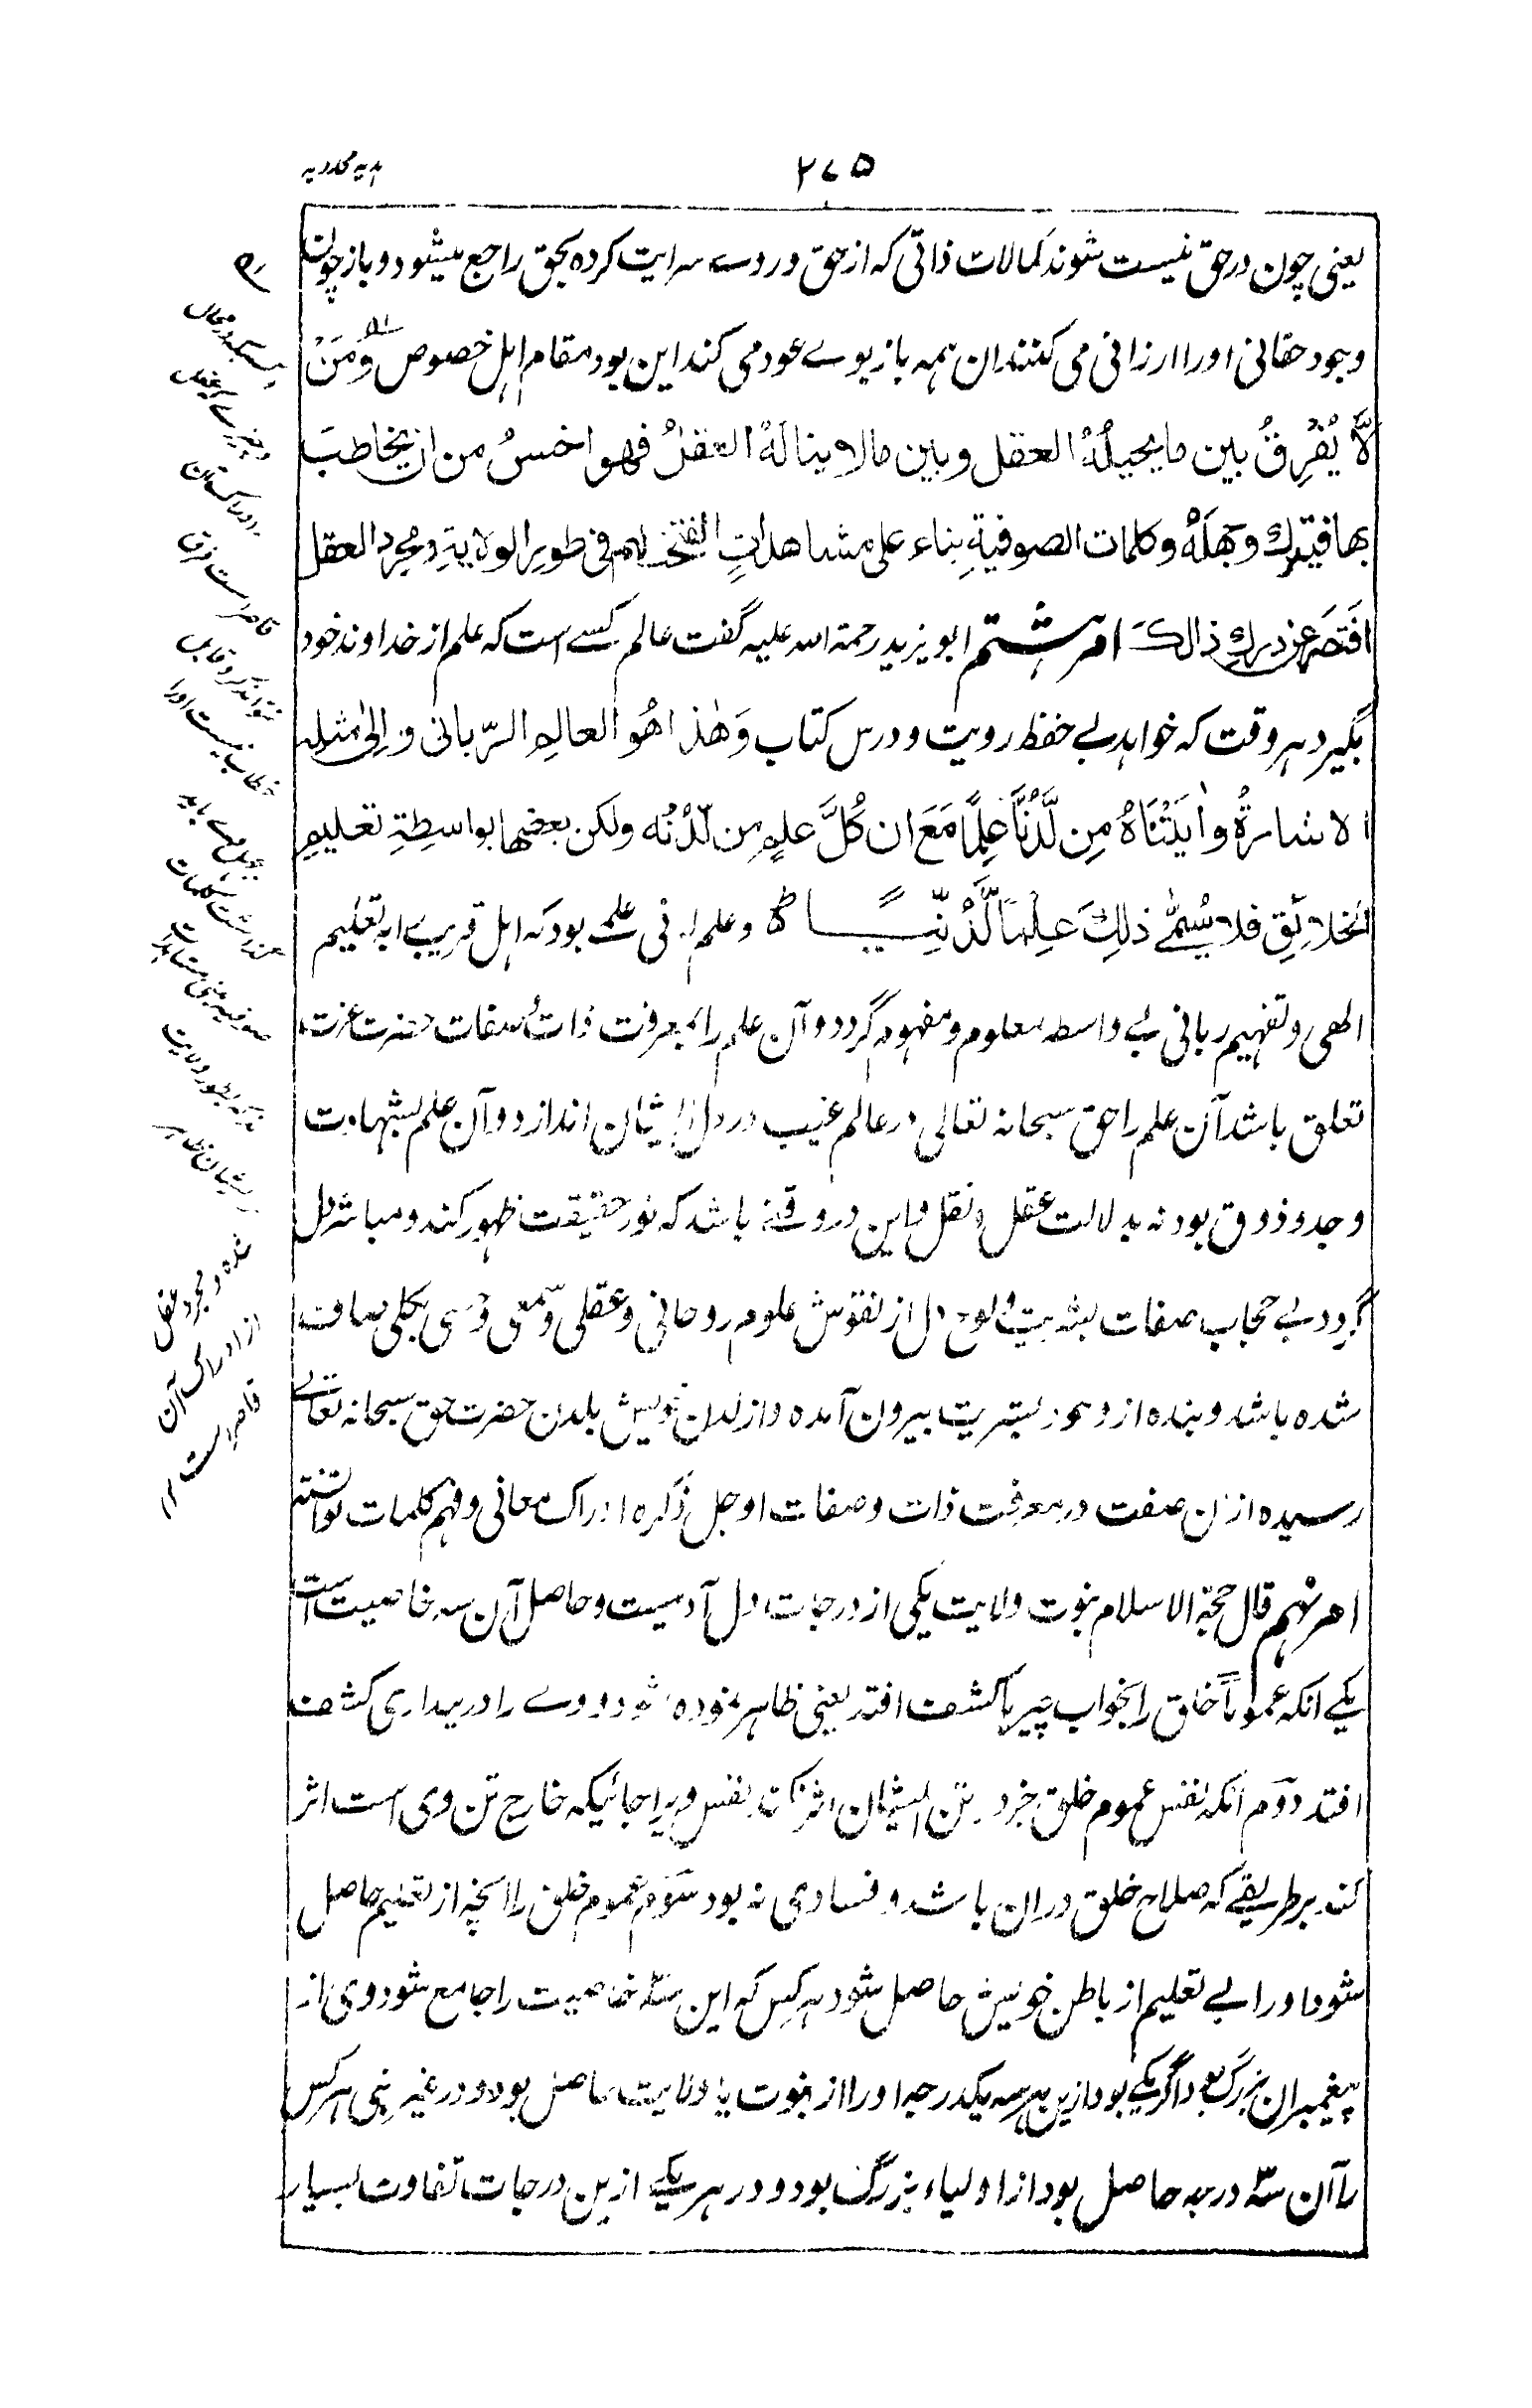 ۲۷۵
ہدیہ مجددیہ
یعنی چون در حق نیست شوند کمالات ذاتی که از حق در وے سرایت کرده بحق راجع میشود و باز چون
وجود حقانی او را ارزانی می کنند ان ہمہ باز بوے عود می کند این بود مقام اہل خصوص وَمَنْ
لَّا يُفْرِقُ بين ما يحيلُهُ العقل وبين مالا ينالَهُ العقلُ فهو اخسُ من ان يخاطبَ
بها فيترك وجهلَهُ وكلمات الصوفيةِ بناء على مشاهداتٍ انفتحت لهم فی طورِ الولايةِ ومجرد العقل
قاصر عن درك ذالك امر ہشتم ابو یزید رحمة الله علیہ گفت عالم کسے است کہ علم از خداوند خود
بگیرد ہر وقت کہ خواہد بے حفظ رویت و درس کتاب وَهٰذا هُو العالم الرّبانى و الىٰ مثله
الاشارةُ واٰتَيْنَاهُ مِن لَّدُنَّا عِلمًا مَعَ ان كُلَّ علمٍ من لّدُنْه ولكن بعضها بواسِطةِ تعليمِ
الخلائِقِ فلا يُسمّٰى ذلِكَ عِلْمًا لَّدُنِّيًّا و علم لدنی علمے بود کہ اہل قرب را بہ تعلیم
الٰھی و تفہیم ربانی بے واسطہ معلوم و مفہوم گردد و آن علم را بمعرفت ذات و صفات حضرت عزت
تعلق باشد آن علم را حق سبحانہ تعالی در عالم غیب در دل ایشان اندازد و آن علم بشہادت
وجد و ذوق بود نہ بدلالت عقل و نقل و این در وقتے باشد کہ نور حقیقت ظہور کند و مباشر دل
گردد بے حجاب صفات بشریت و لوح دل از نقوش علوم روحانی و عقلی و سمعی و حسی بکلی صافت
شدہ باشد و بندہ از وجود بشریت بیرون آمدہ و از لدن خویش بلدن حضرت حق سبحانہ تعالے
رسیدہ از ان صفت در معرفت ذات و صفات او جل ذکرہ ادراک معانی و فہم کلمات توانستہ
امر نہم قال حجة الاسلام نبوت ولایت یکی از درجات دل آدمیست و حاصل آن سہ خاصیت است
یکے انکہ عموماً خلق را بخواب چیز ہا کشف افتد یعنی ظاہر نمودہ شود و وے را در بیداری کشف
افتد دوم آنکہ نفس عموم خلق جز در تن ایشان اثر نکند نفس وے را جائیکہ خارج تن وی است اثر
کند بر طریقے کہ صلاح خلق در ان باشد و فسادی نہ بود سوم عموم خلق را انچہ از تعلیم حاصل
شود او را بے تعلیم از باطن خویش حاصل شود ہر کس کہ این سہ خاصیت را جامع شود وی از
پیغمبران بزرگ بود اگر یکے بود ازین ہر سہ یکدرجہ او را از نبوت یا ولایت حاصل بود و در غیر نبی ہر کس
را آن سہ درجہ حاصل بود از اولیاء بزرگ بود و در ہر یکے ازین درجات تفاوت بسیار
قاصر است فرق
خطاب نیست او را
بجہل وے باید
گذاشت کلمات
صوفیہ مبنی بمشاہدات
کہ بطور ولایت
شدہ و مجرد عقل
از ادراک آن
قاصر است ۱۲